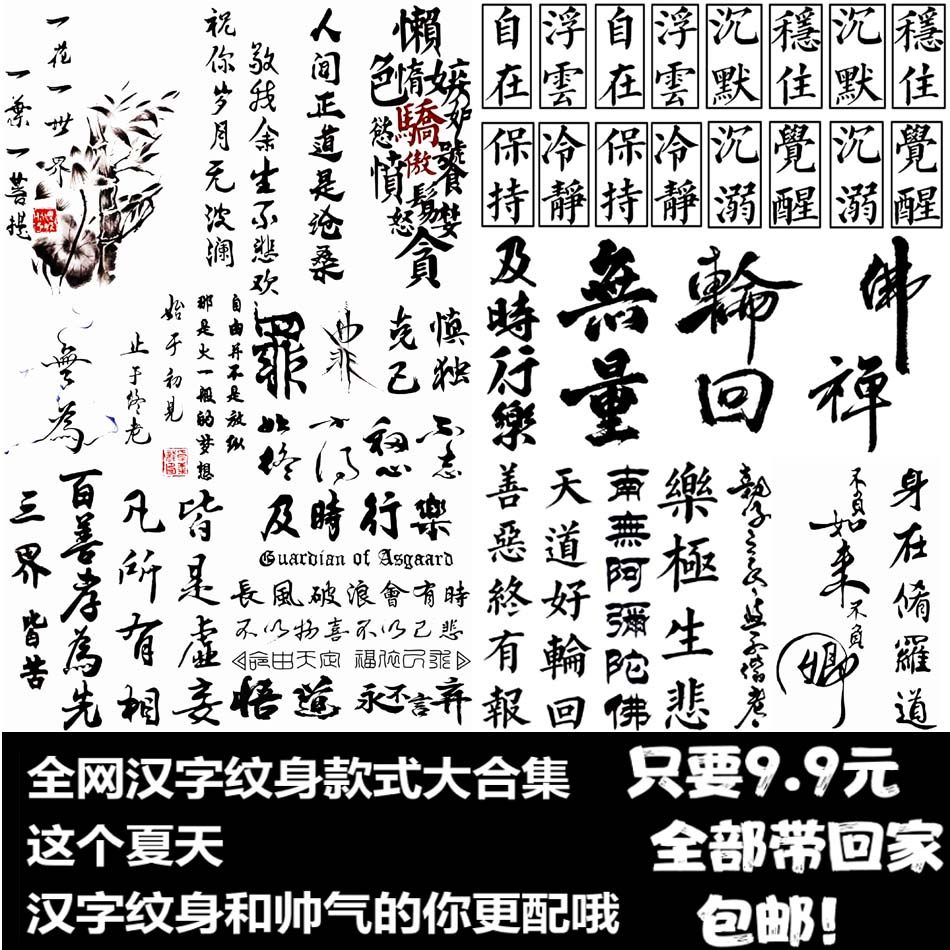 一花一世界
一葉一菩提
祝你岁月无波澜
敬我余生不悲欢
人间正道是沧桑
懶
惰
色
慾
嫉妒
驕
傲
憤
怒
饕
貪
自在
浮雲
自在
浮雲
沉默
穩住
沉默
穩住
保持
冷靜
保持
冷靜
沉溺
覺醒
沉溺
覺醒
無為
止于终老
始于初見
那是火一般的梦想
自由并不是放纵
罪
克己
慎独
始终
不忘
初心
及時行樂
無量
輪回
佛
禅
三界皆苦
百善孝為先
凡所有相
皆是虚妄
及時行樂
Guardian of Asgaard
長風破浪會有時
不以物喜不以己悲
命由天定 福依己飛
悟道
永不言弃
善惡終有報
天道好輪回
南無阿彌陀佛
樂極生悲
不負如来不負卿
身在脩羅道
全网汉字纹身款式大合集
只要9.9元
这个夏天
全部带回家
汉字纹身和帅气的你更配哦
包邮!